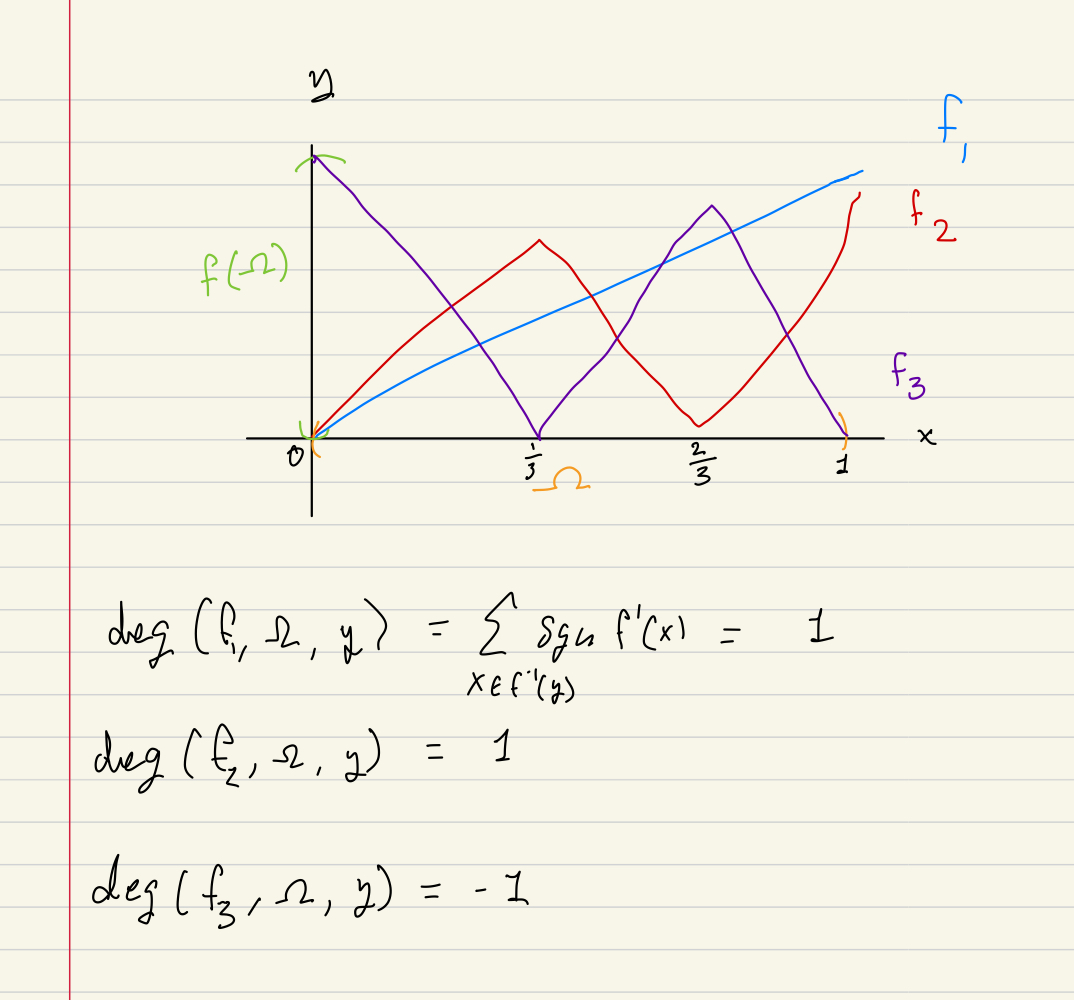 y
f₁
f₂
f(Ω)
f₃
0 1/3 2/3 1 x
Ω
deg (f₁, Ω, y) = ∑ sgn f'(x) = 1
x∈f⁻¹(y)
deg (f₂, Ω, y) = 1
deg (f₃, Ω, y) = -1